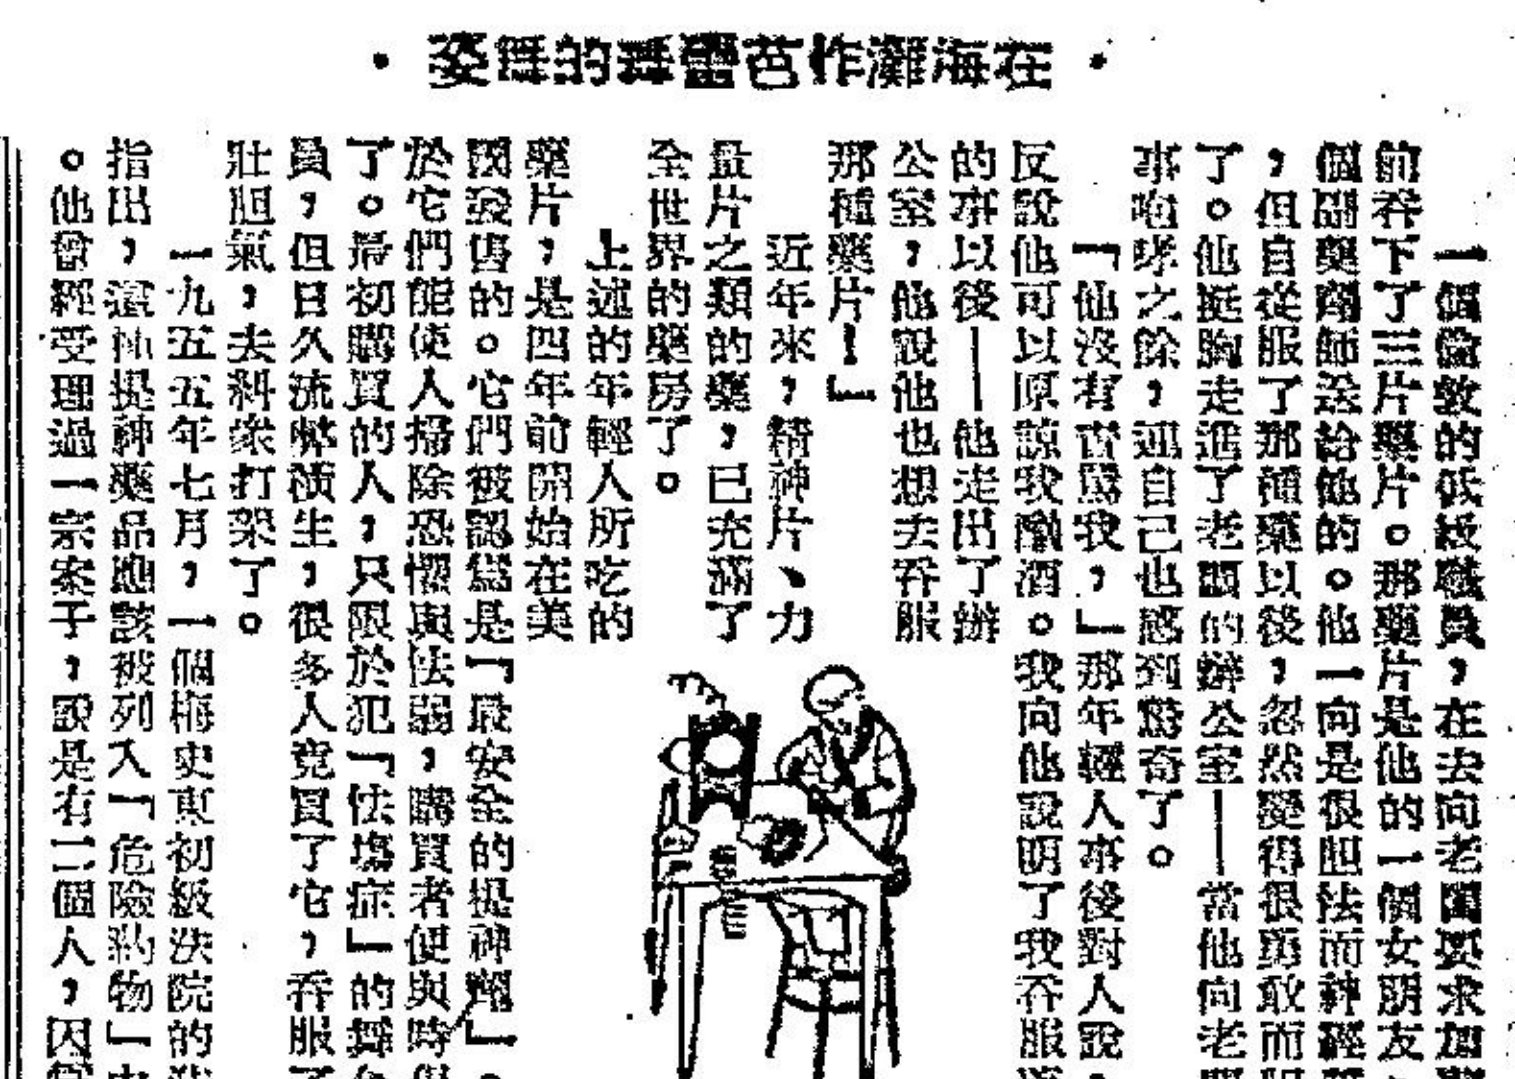 ・在海灘作芭蕾舞的舞姿・
一個倫敦的低級職員，在去向老闆要求加
前吞下了三片藥片。那藥片是他的一個女朋友
個副藥劑師送給他的。他一向是很胆怯而神經
，但自從服了那種藥以後，忽然變得很勇敢而
了。他挺胸走進了老頭的辦公室——當他向老
事咆哮之餘，連自己也感到驚奇了。
「他沒有責罵我，」那年輕人事後對人說，
反說他可以原諒我酗酒。我向他說明了我吞服
的事以後——他走出了辦
公室，他說他也想去吞服
那種藥片！」
近年來，精神片、力
量片之類的藥，已充滿了
全世界的藥房了。
上述的年輕人所吃的
藥片，是四年前開始在美
國發售的。它們被認為是「最安全的提神劑」。
於它們能使人掃除恐懼與怯弱，購買者便與時俱
了。最初購買的人，只限於犯「怯場症」的舞台
員，但日久流弊漬生，很多人竟買了它，吞服了
壯胆氣，去糾衆打架了。
一九五五年七月，一個梅史東初級法院的
指出，這種提神藥品應該被列入「危險葯物」中
。他曾經受理過一宗案子，說是有二個人，因